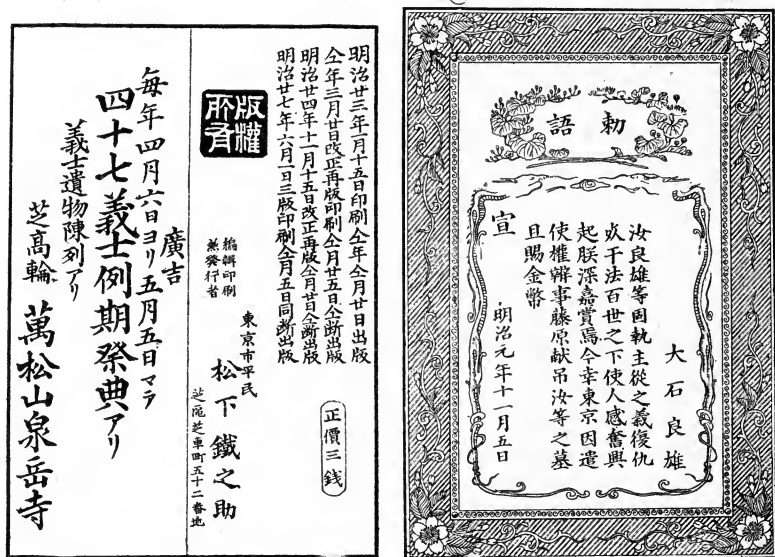 勅語
大石良雄
汝良雄等固執主從之義復仇
死于法百世之下使人感奮興
起朕深嘉賞焉今幸東京因遣
使權辨事藤原献吊汝等之墓
且賜金幣
宣
明治元年十一月五日
明治廿三年一月十五日印刷仝年仝月廿日出版
仝年三月廿日改正再版印刷仝月廿五日仝断出版
明治廿四年十一月十五日改正再版仝月廿日仝断出版
明治廿七年六月一日三版印刷仝月五日同断出版
正價三銭
版權所有
編輯印刷
兼發行者
東京市平民
松下鐵之助
芝區芝車町五十二番地
廣吉
毎年四月六日ヨリ五月五日マデ
四十七義士例期祭典アリ
義士遺物陳列アリ
芝高輪
萬松山泉岳寺